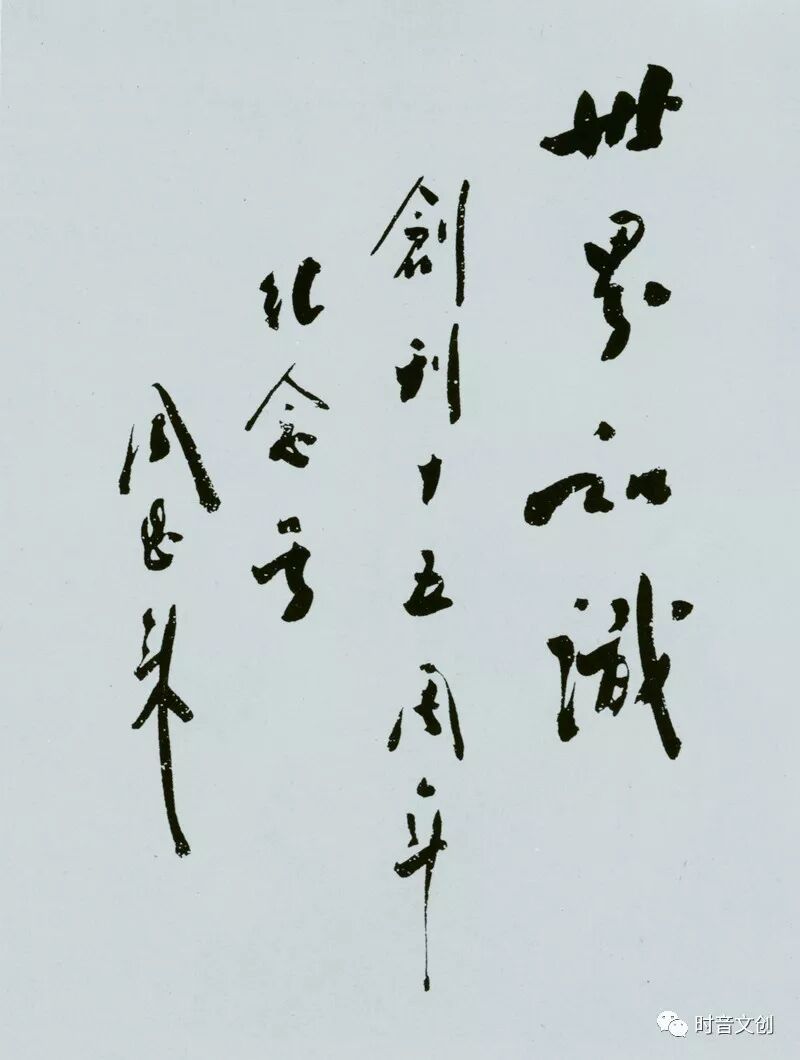 世界知識
創刊十五周年
纪念号
周恩来
时音文创